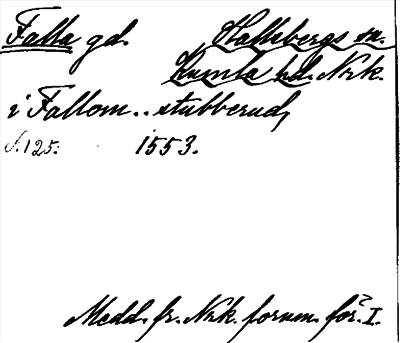 Falla gd. Hallsbergs sn.
Kumla hd. Nrk.
i Fallom .. stubberud,
s. 125. 1553.
Medd. fr. Nrk. fornm. för. I.